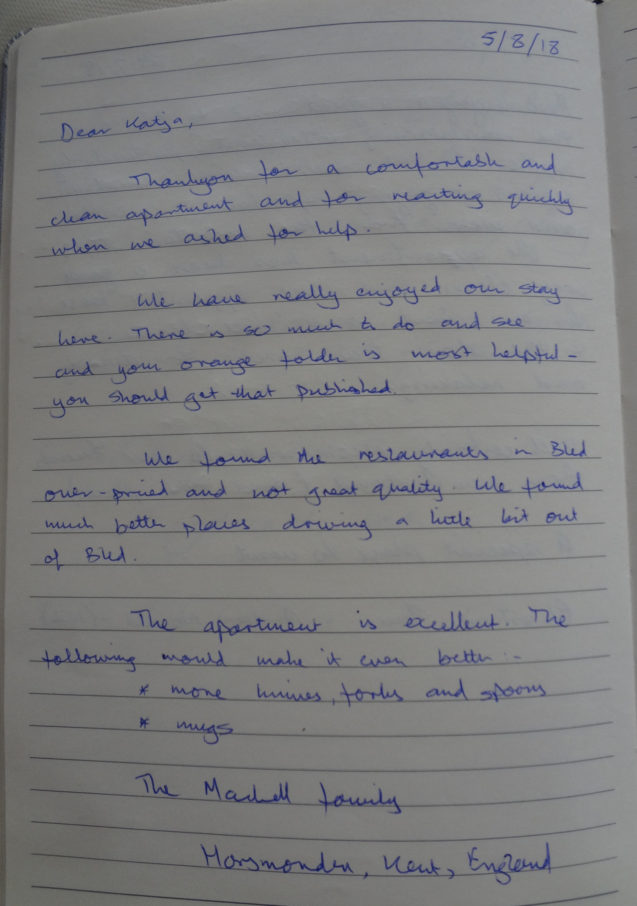 5/8/18
Dear Katja,
Thankyou for a comfortable and
clean apartment and for reacting quickly
when we asked for help.
We have really enjoyed our stay
here. There is so much to do and see
and your orange folder is most helpful -
you should get that published.
We found the restaurants in Bled
over-priced and not great quality. We found
much better places driving a little bit out
of Bled.
The apartment is excellent. The
following would make it even better:-
* more knives, forks and spoons
* mugs
The family
Horsmonden, Kent, England